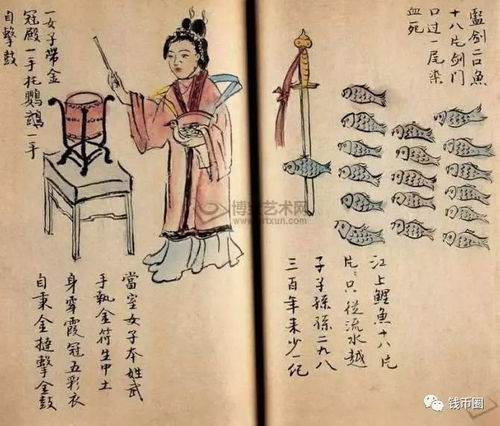 劍二口魚
十八片劍门
口过一尾染
血死
江上鯉魚十八片
片〻只從流水越
子子孫孫二九八
三百年來少一纪
一女子帶金
冠殿一手托鸚鵡一手
自擊鼓
當空女子本姓武
手執金符生中土
身穿霞冠五彩衣
自秉金撾擊金鼓
博宝艺术网
artxun.com
钱币圈